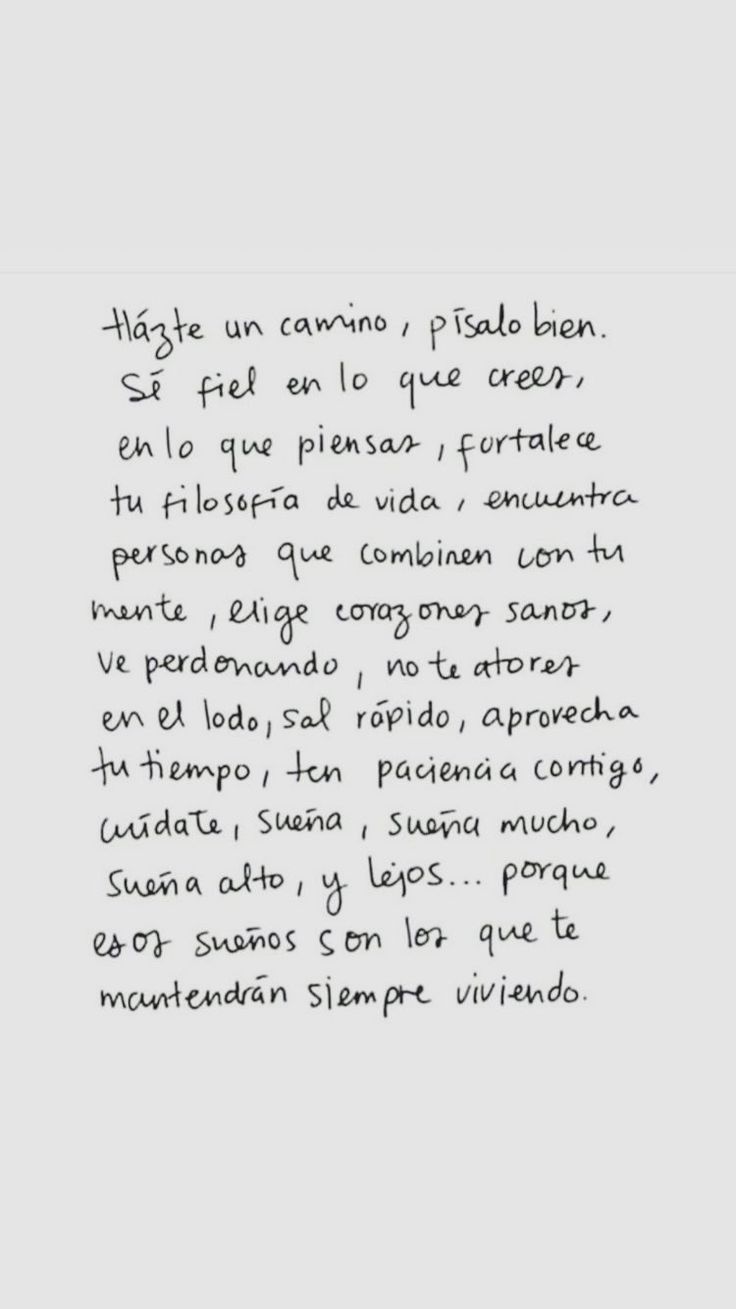 Házte un camino, písalo bien.
Sé fiel en lo que crees,
en lo que piensas, fortalece
tu filosofía de vida, encuentra
personas que combinen con tu
mente, elige corazones sanos,
ve perdonando, no te atores
en el lodo, sal rápido, aprovecha
tu tiempo, ten paciencia contigo,
cuídate, sueña, sueña mucho,
sueña alto, y lejos... porque
esos sueños son los que te
mantendrán siempre viviendo.